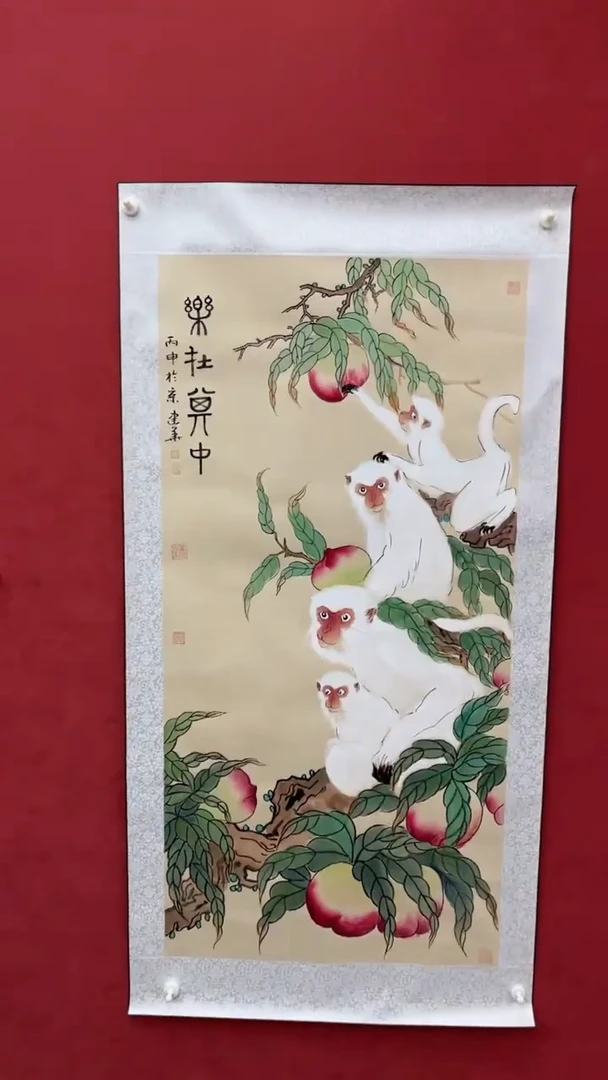 樂在其中
丙申於京建華